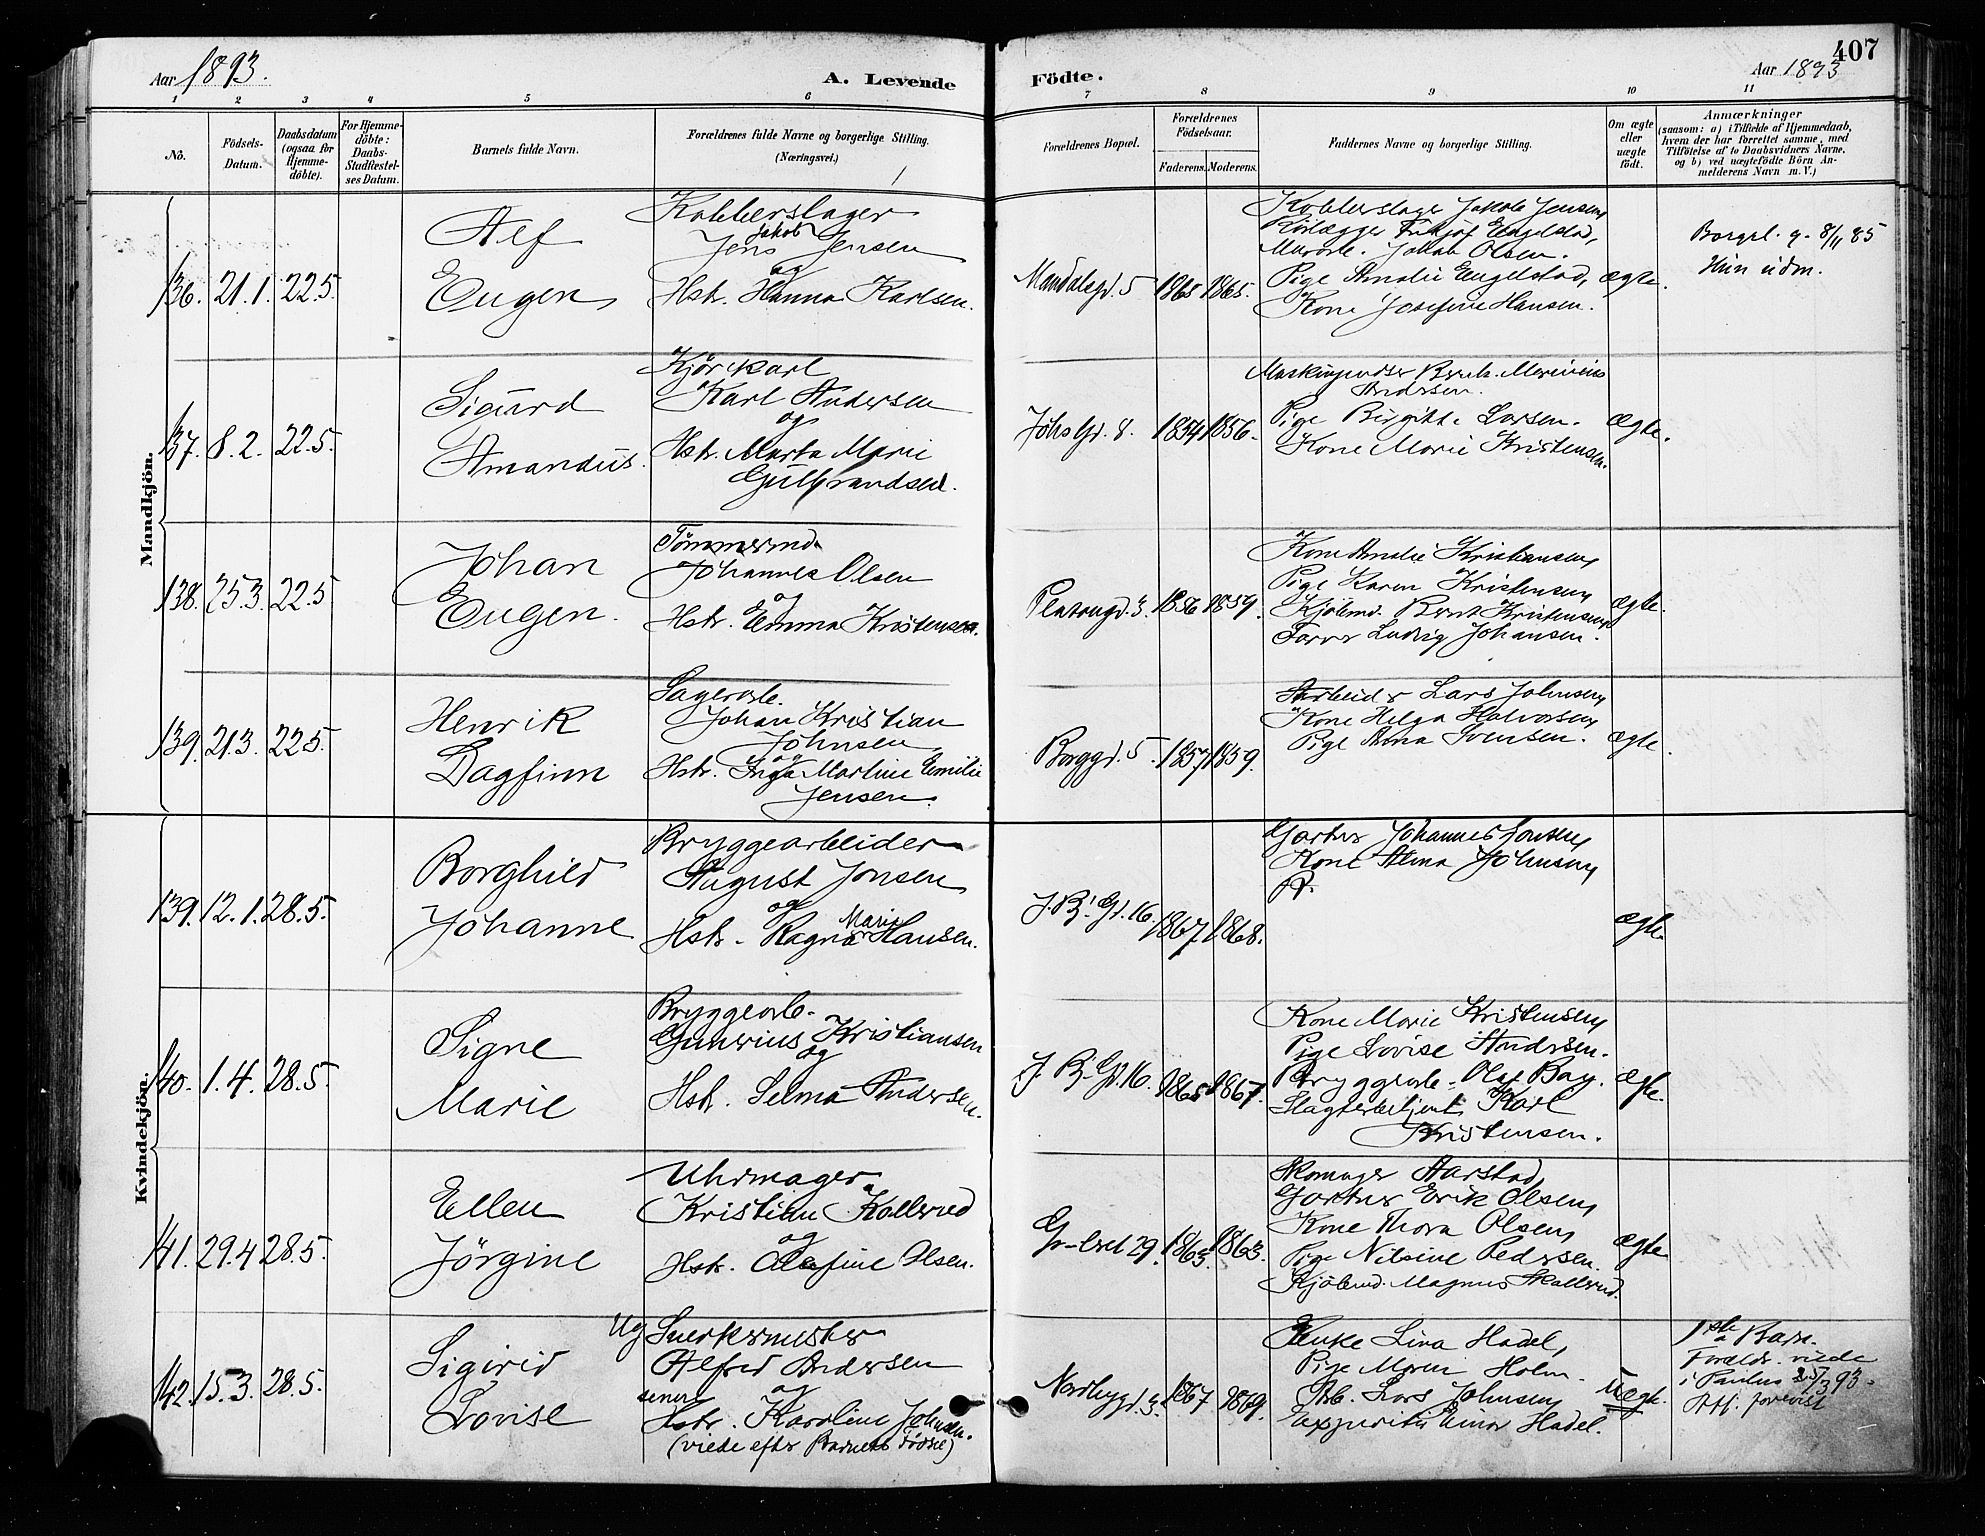 Aar 1893.
A. Levende
Födte.
407
Aar 1893
1 2 3 4 5 6 7 8 9 10 11
No.
Födsels-Datum.
Daabsdatum (ogsaa for Hjemme-döbte).
For Hjemme-döbte: Daabs-Stadfestel-ses Datum.
Barnets fulde Navn.
Forældrenes fulde Navne og borgerlige Stilling. (Næringsvei.)
Forældrenes Bopæl.
Forældrenes Födselsaar.
Faderens. Moderens.
Faddernes Navne og borgerlige Stilling.
Om ægte eller uægte födt.
Anmærkninger
(saasom: a) i Tilfælde af Hjemmedaab,
hvem der har forrettet samme, med
Tilföielse af to Daabsvidners Navne,
og b) ved uægtefödte Börn An-
melderens Navn m. V.)
Mandkjön.
136. 21.1. 22.5
Alf
Eugen
Kobberslager
Jakob
Jens Jensen
og
Hstr. Hanna Karlsen.
Mandalsgd. 5
1865 1865.
Kobberslager Jakob Jensen
Rörlægger Fritjof Engelstad,
Murarb. Johan Olsen.
Pige Amalie Engelstad,
Kone Josefine Hansen.
ægte.
Borgerl. g. 8/11 85
Hun udm.
137. 8.2. 22.5.
Sigurd
Amandus.
Kjörekarl
Karl Andersen
og
Hstr. Marta Marie
Gulbrandsen.
Johs Gd. 8.
1854 1856.
Andersen.
Pige Birgitte Larsen.
Kone Marie Kristensen.
ægte.
138. 25.3. 22.5
Johan
Eugen.
Tömmermd.
Johannes Olsen
og
Hstr. Emma Kristensen.
Platougd. 3.
1856 1859.
Kone Amalie Kristiansen
Pige Karen Kristensen
Kjöbmd. Bernt Kristensen
Farver Ludvig Johansen.
ægte.
139. 21.3. 22.5.
Henrik
Dagfinn
Sagarb.
Johan Kristian
Johnsen
og
Hstr. Inga Martine Emilie
Jensen.
Borggd. 5.
1857 1859.
Arbeider Lars Johnsen
Kone Helga Halvorsen
Pige Anna Svensen.
ægte.
Kvindekjön.
139. 12.1. 28.5.
Borghild
Johanne
Bryggearbeider
August Jonsen
og
Marie
Hstr. Ragna Hansen.
J. Bj. Gd. 16.
1867 1868.
Gartner Johannes Jonsen
Kone Alma Johnsen
P.
ægte.
140. 1.4. 28.5.
Signe
Marie
Bryggearb.
Gunerius Kristiansen
og
Hstr. Selma Andersen.
J. Bj. Gd. 16.
1865 1867.
Kone Marie Kristensen
Pige Lovise Andersen.
Bryggearb. Olaf Bay.
Slagterbetjent Karl
Kristensen.
ægte.
141. 29.4 28.5.
Ellen
Jörgine
Uhrmager
Kristian Kollerud
og
Hstr. Olefine Olsen.
Gr-leret 29.
1863. 1863.
Skomager Aarstad,
Gartner Erik Olsen
Kone Thora Olsen
Pige Nilsine Pedersen.
Kjöbmd. Magnus Skallerud.
ægte
142. 15.3. 28.5.
Sigirid
Lovise
Ug Snerkermester
Alfred Andersen
og
senere
Hstr. Karoline Johnsen.
(viede efter Barnets Födsel)
Nordbygd. 3.
1867 1869.
Enke Lina Hadel,
Pige Maren Holm.
Arb. Lars Johnsen
Expeditör Einar Hadel.
Uægte.
1ste Barn.
Foreldr. viede
i Paulus 25/3 93.
Att. forevist